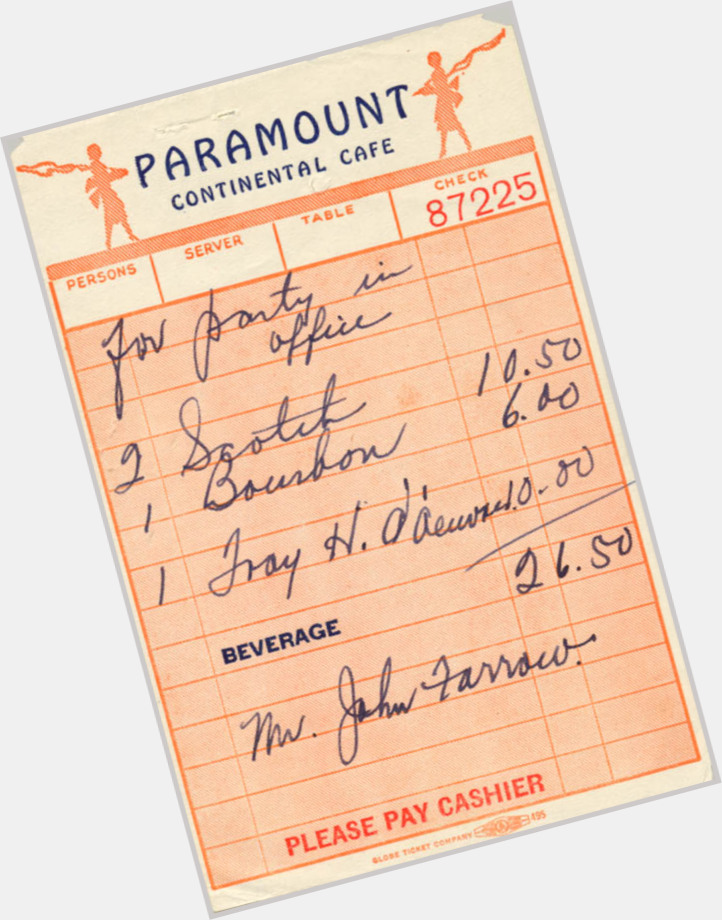 PARAMOUNT
CONTINENTAL CAFE
PERSONS SERVER TABLE CHECK
87225
For party in
office
2 Scotch 10.50
1 Bourbon 6.00
1 Tray H. d'oeuvres 10.00
26.50
BEVERAGE
Mr. John Farrow.
PLEASE PAY CASHIER
GLOBE TICKET COMPANY 495